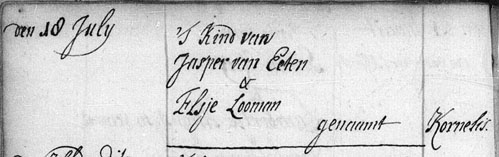 den 18 July
'S Kind van
Jasper van Eeten
&
Elsje Looman
genaamt Kornelis.